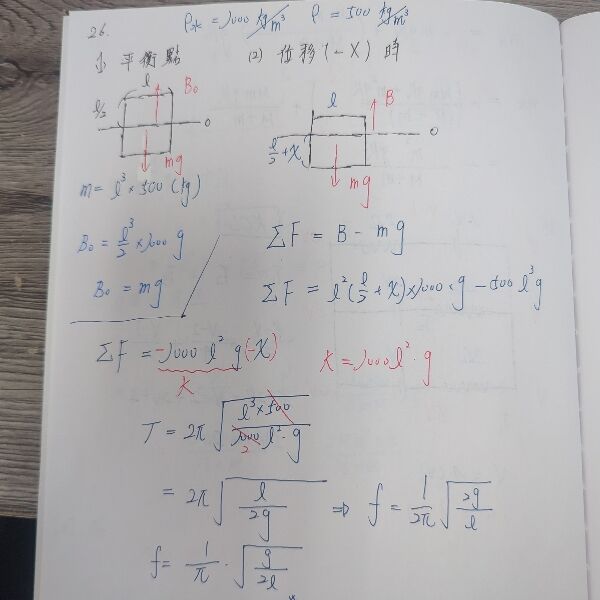 26. ρ水 = 1000 kg/m³ ρ = 500 kg/m³
(1) 平衡點 (2) 位移 (-X) 時
l B₀ l/2 0 mg
l B l/2 + X 0 mg
m = l³ × 500 (kg)
B₀ = l³/2 × 1000 g
B₀ = mg
ΣF = B - mg
ΣF = l²(l/2 + X) × 1000 · g - 500 l³ g
ΣF = -1000 l² g (-X) K = 1000 l² · g
K
T = 2π √(l³ × 500 / 1000 l² · g)
2
= 2π √(l / 2g) ⇒ f = 1/2π √(2g / l)
f = 1/π · √(g / 2l)